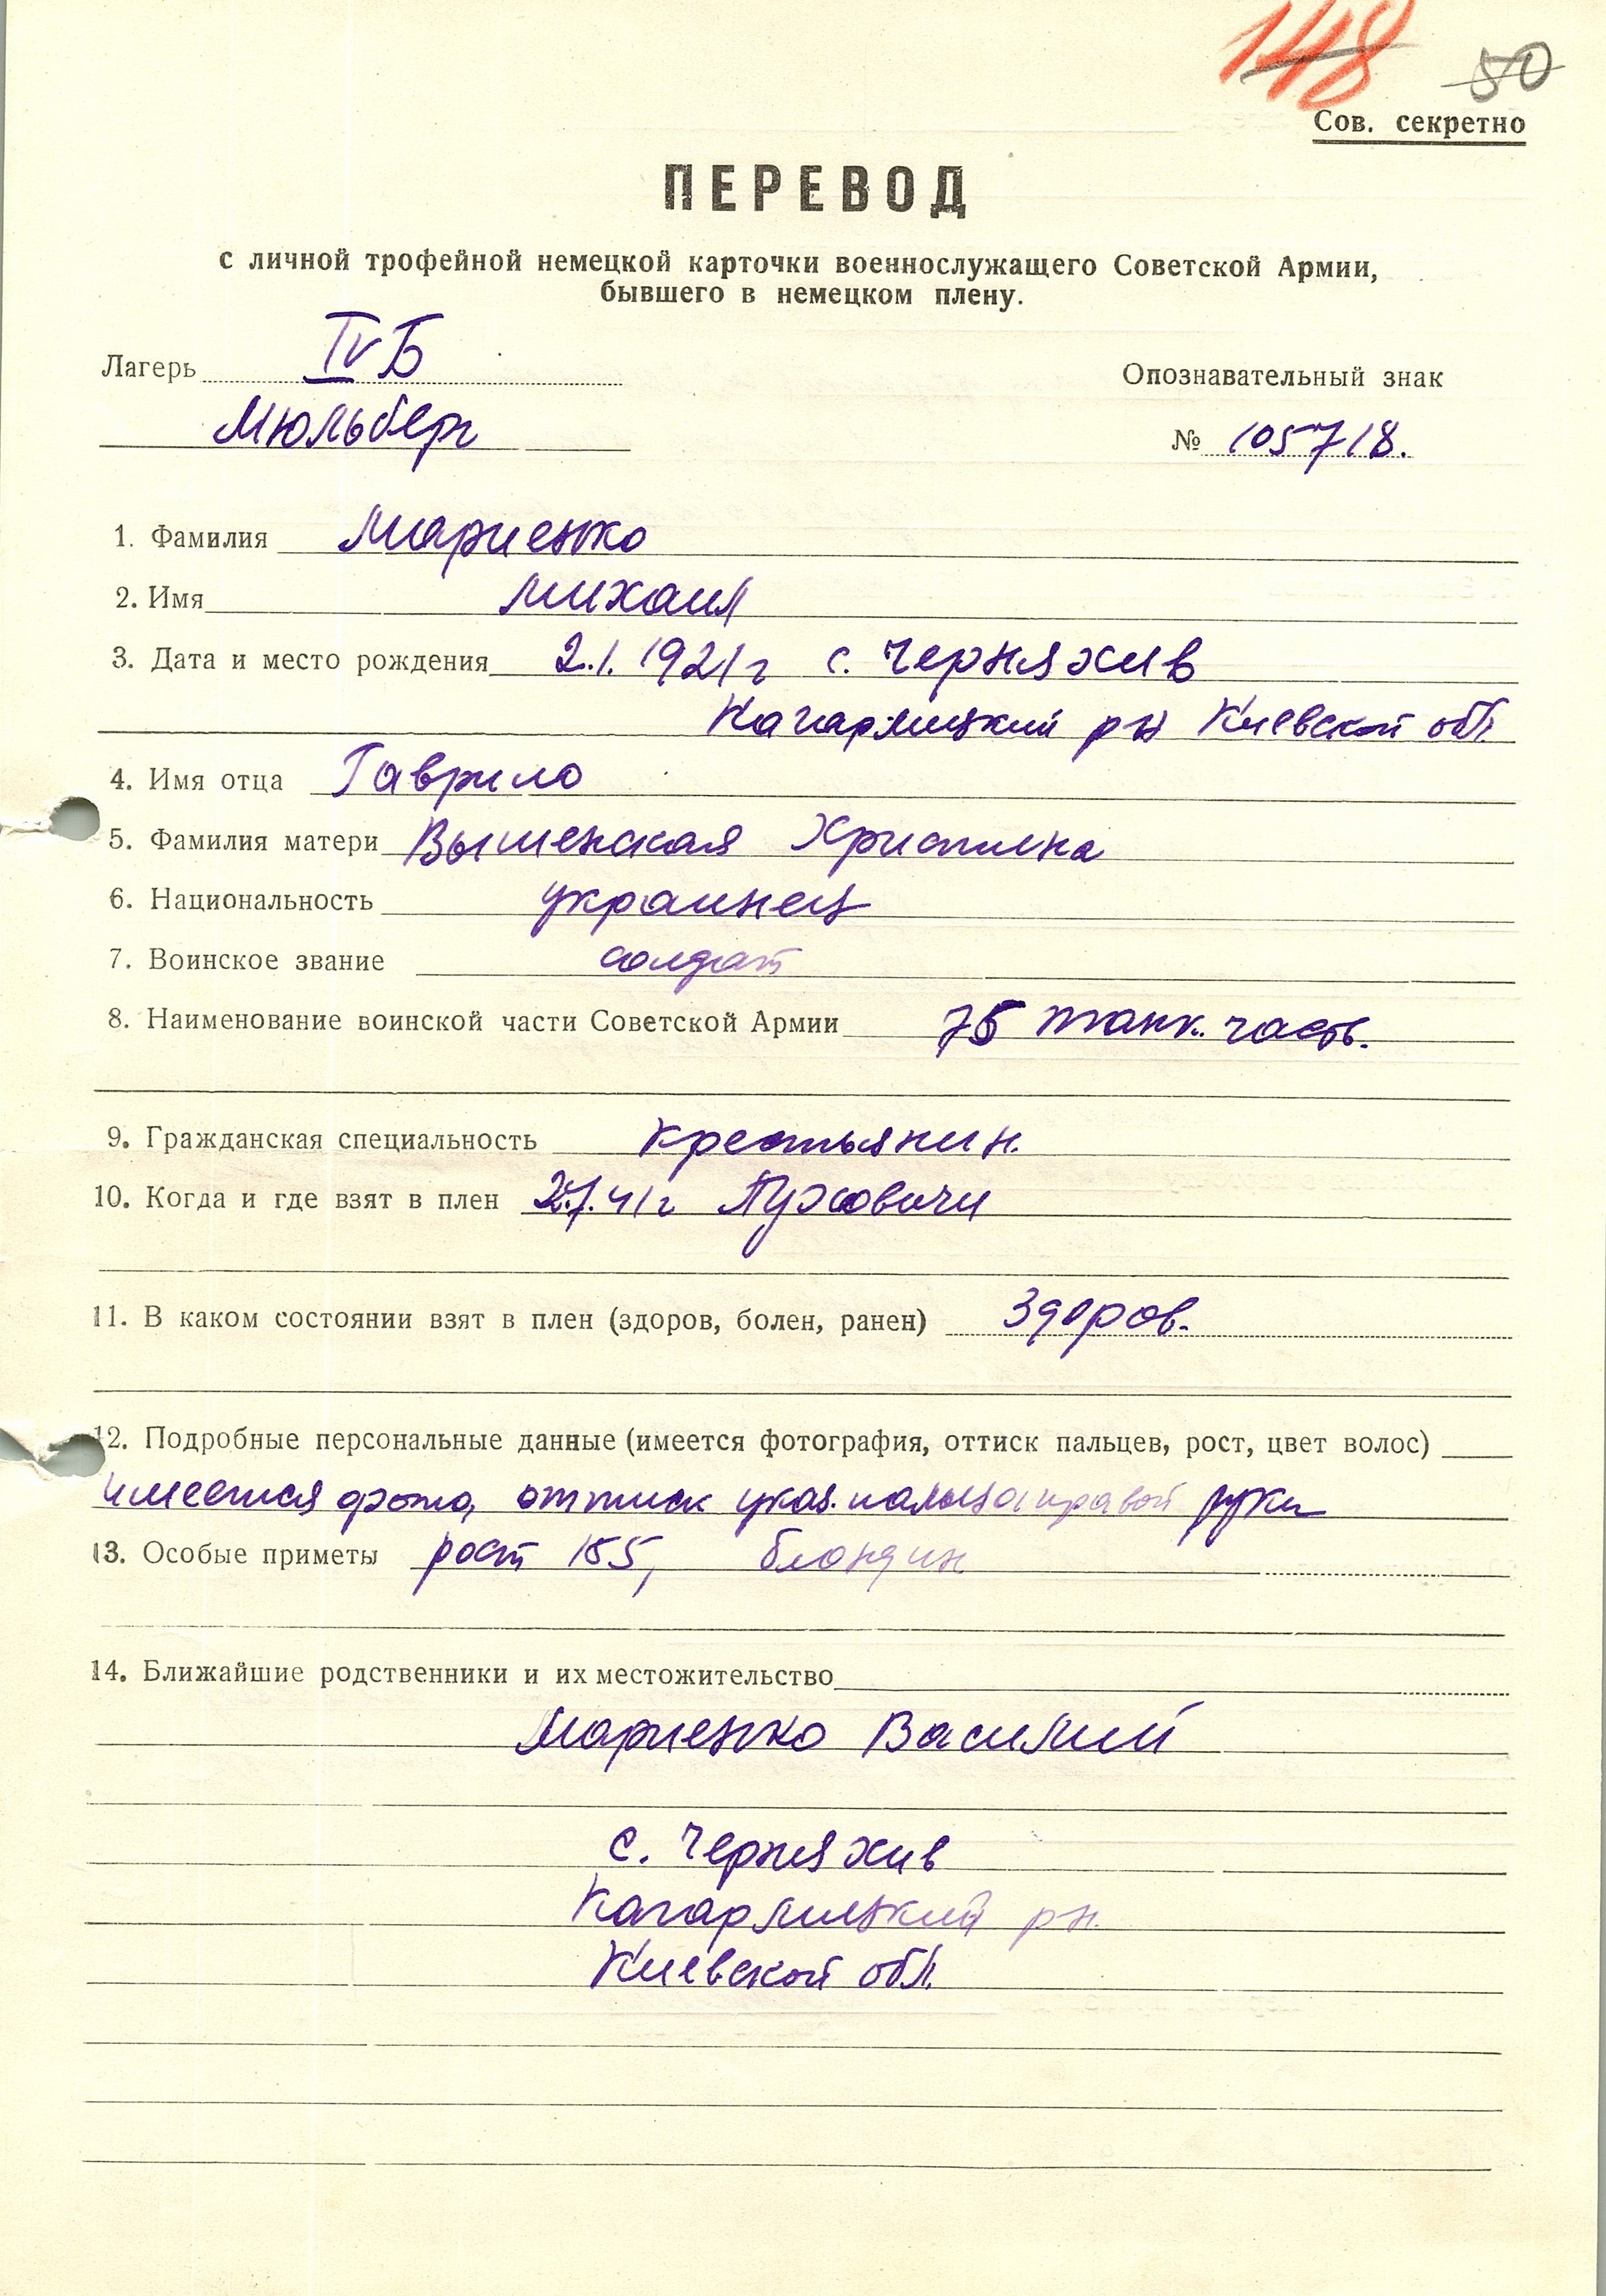 148 50
Сов. секретно
ПЕРЕВОД
с личной трофейной немецкой карточки военнослужащего Советской Армии,
бывшего в немецком плену.
Лагерь IV Б
Опознавательный знак
Мюльберг
№ 105718.
1. Фамилия Мариенко
2. Имя Михаил
3. Дата и место рождения 2.1.1921 г с. Черняхив
Кагарлицкий рн Киевской обл.
4. Имя отца Гаврило
5. Фамилия матери Вышенская Христина
6. Национальность украинец
7. Воинское звание солдат
8. Наименование воинской части Советской Армии 75 танк. часть.
9. Гражданская специальность крестьянин.
10. Когда и где взят в плен 2.7.41 г Пуховичи
11. В каком состоянии взят в плен (здоров, болен, ранен) здоров.
12. Подробные персональные данные (имеется фотография, оттиск пальцев, рост, цвет волос)
имеется фото, оттиск указ. пальца правой руки
13. Особые приметы рост 165, блондин
14. Ближайшие родственники и их местожительство
Мариенко Василий
с. Черняхив
Кагарлицкий рн.
Киевской обл.